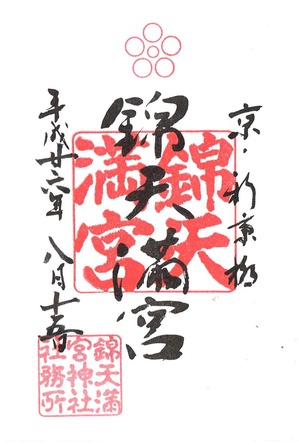 京・新京極
錦天満宮
錦天
満宮
平成廿六年 八月十五日
錦天満
宮神社
社務所